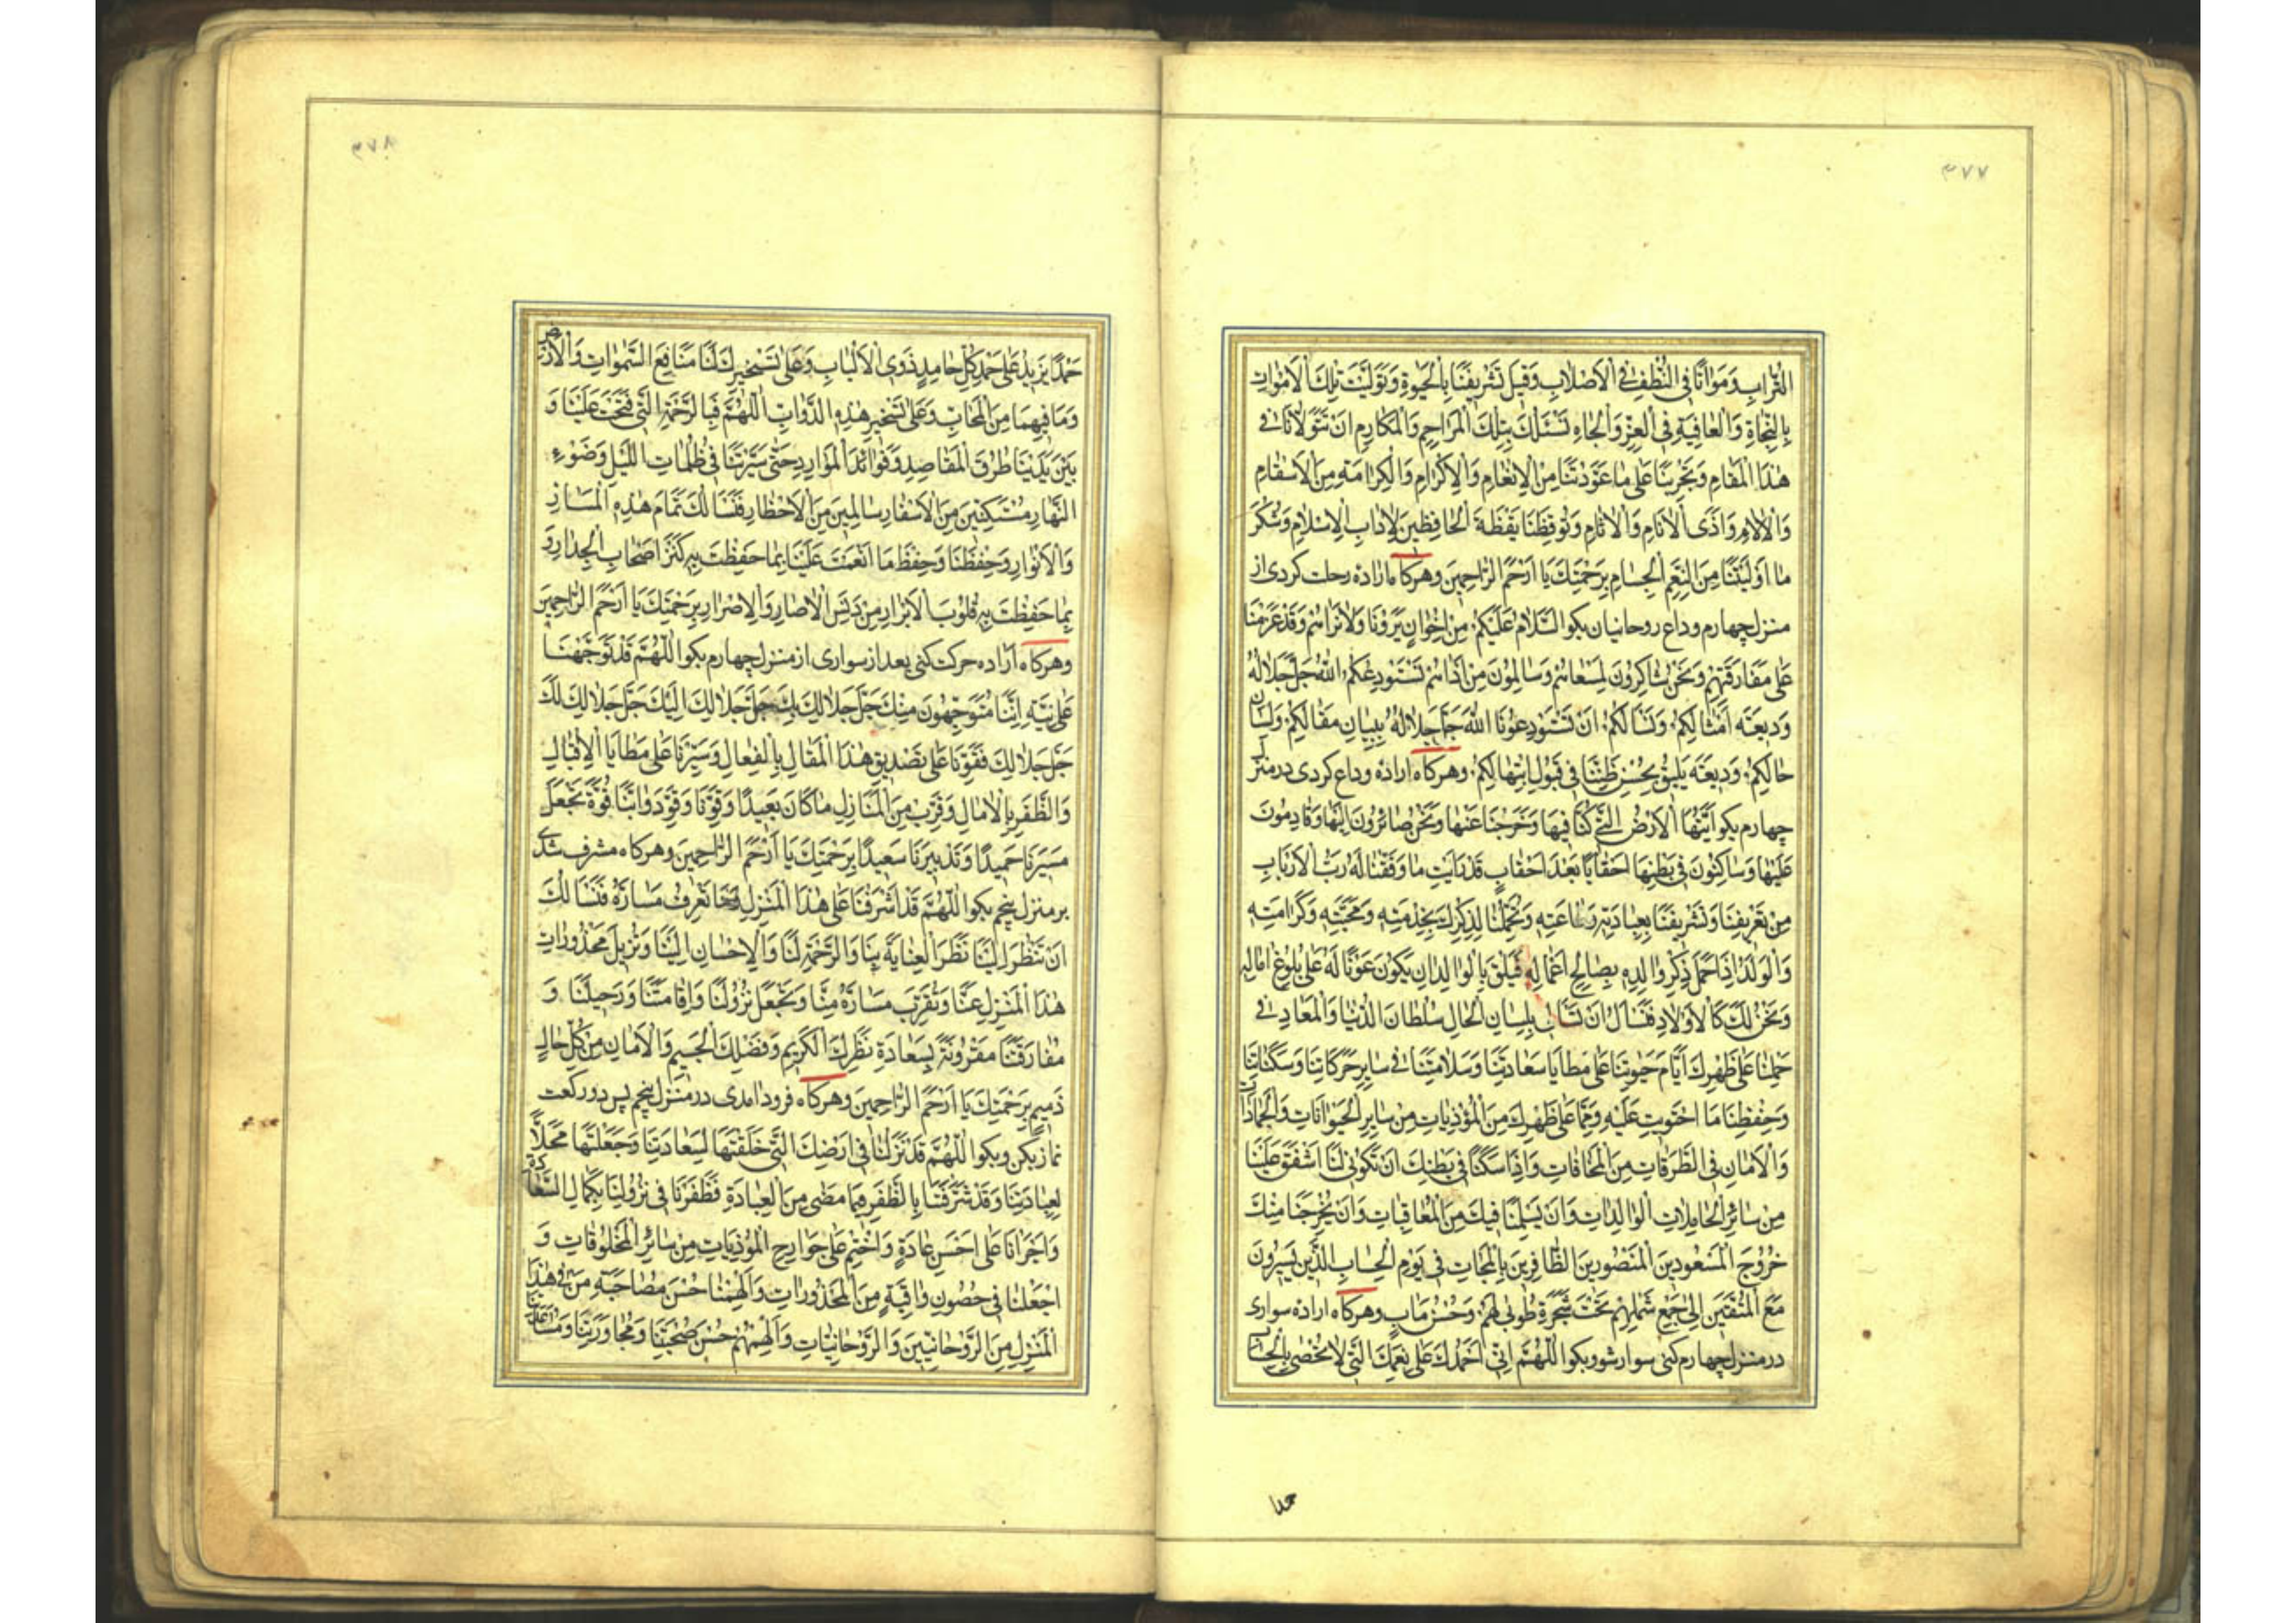 ۳۷۷
التُّرابِ وَمَوَاتًا فِی النُّطَفِ فِی الْاَصْلابِ وَقَبْلَ تَشْرِیفِنَا بِالْحَیٰوةِ وَتَوَلَّیْتَ تِلْكَ الْاَمْوَاتِ
بِالنَّجَاةِ وَالْعَافِیَةِ فِی الْعِزِّ وَالْجَاهِ نَسْئَلُكَ بِتِلْكَ الْمَرَاحِمِ وَالْمَكَارِمِ اَنْ تَتَوَلَّانَا فِی
هٰذَا الْمَقَامِ وَتُجْرِیَنَا عَلٰی مَا عَوَّدْتَنَا مِنَ الْاِنْعَامِ وَالْاِكْرَامِ وَالْكَرَامَةِ مِنَ الْاَسْقَامِ
وَالْاٰلَامِ وَاَذَی الْاَنَامِ وَالْاٰثَامِ وَتُوقِظَنَا یَقْظَةَ الْحَافِظِینَ لِاٰدَابِ الْاِسْلَامِ وَشُكْرَ
مَا اَوْلَیْتَنَا مِنَ النِّعَمِ الْجِسَامِ بِرَحْمَتِكَ یَا اَرْحَمَ الرَّاحِمِینَ وهرکاه اراده رحلت کردی از
منزل چهارم وداع روحانیان بکو اَلسَّلَامُ عَلَیْكُمْ مِنْ اِخْوَانٍ یَرَوْنَا وَلَانَرَاهُمْ وَقَدْ عَزَمْنَا
عَلٰی مَفَارَقَتِهِمْ وَنَحْنُ شَاكِرُونَ لِمَسْعَاهُمْ وَسَالِمُونَ مِنْ اَذَاهُمْ نَسْتَوْدِعُكُمُ اللهَ جَلَّ جَلَالُهُ
وَدِیعَةَ اَمْثَالِكُمْ وَنَسْأَلُكُمْ اَنْ تَسْتَوْدِعُونَا اللهَ جَلَّ جَلَالُهُ بِبَیَانِ مَقَالِكُمْ وَلِسَانِ
حَالِكُمْ وَدِیعَةً یَلِیقُ بِحُسْنِ ظَنِّنَا فِی قَبُولِ ابْتِهَالِكُمْ وهرکاه اراده وداع کردی در منزل
چهارم بکو اَیَّتُهَا الْاَرْضُ الَّتِی كُنَّا فِیهَا وَخَرَجْنَا عَنْهَا وَنَحْنُ صَائِرُونَ اِلَیْهَا وَقَادِمُونَ
عَلَیْهَا وَسَاكِنُونَ فِی بَطْنِهَا اَحْقَابًا بَعْدَ اَحْقَابٍ قَدْ رَاَیْتِ مَا وَفَّقَنَا لَهُ رَبُّ الْاَرْبَابِ
مِنْ تَعْرِیفِنَا وَتَشْرِیفِنَا بِعِبَادَتِهِ وَطَاعَتِهِ وَبِحَمْلِنَا لِذِكْرِكِ بِخِدْمَتِهِ وَمَحَبَّتِهِ وَكَرَامَتِهِ
وَالْوَلَدُ اِذَا حَمَلَ ذِكْرَ وَالِدِهِ بِصَالِحِ اَعْمَالِهِ فَیَلِیقُ بِالْوَالِدِ اَنْ یَكُونَ عَوْنًا لَهُ عَلٰی بُلُوغِ اٰمَالِهِ
وَنَحْنُ لَكِ كَالْاَوْلَادِ فَنَسْأَلُ اَنْ تَسْأَلِی بِلِسَانِ الْحَالِ سُلْطَانَ الدُّنْیَا وَالْمَعَادِ فِی
حَمْلِنَا عَلٰی ظَهْرِكِ اَیَّامَ حَیٰوتِنَا عَلٰی مَطَایَا سَعَادَتِنَا وَسَلَامَتِنَا فِی سَایِرِ حَرَكَاتِنَا وَسَكَنَاتِنَا
وَحِفْظِنَا مَا احْتَوَیْتِ عَلَیْهِ وَمِمَّا عَلٰی ظَهْرِكِ مِنَ الْمُؤْذِیَاتِ مِنْ سَایِرِ الْحَیَوَانَاتِ وَالْجَمَادَاتِ
وَالْاَمَانِ فِی الطُّرُقَاتِ مِنَ الْمَخَافَاتِ وَاِذَا سَكَنَّا فِی بَطْنِكِ اَنْ تَكُونِی لَنَا اَشْفَقَ عَلَیْنَا
مِنْ سَائِرِ الْحَامِلَاتِ الْوَالِدَاتِ وَاَنْ یُسَلِّمَنَا فِیكِ مِنَ الْمُعَاقَبَاتِ وَاَنْ یُخْرِجَنَا مِنْكِ
خُرُوجَ الْمَسْعُودِینَ الْمَنْصُورِینَ الظَّافِرِینَ بِالْمَجَابِ فِی یَوْمِ الْحِسَابِ الَّذِینَ یَسِیرُونَ
مَعَ الْمُتَّقِینَ اِلٰی جَمْعِ شَمْلِهِمْ تَحْتَ شَجَرَةِ طُوبٰی لَهُمْ وَحُسْنُ مَاٰبٍ وهرکاه اراده سواری
در منزل چهارم کنی سوار شو و بکو اَللّٰهُمَّ اِنِّی اَحْمَدُكَ عَلٰی نِعَمِكَ الَّتِی لَا تُحْصٰی بِالْحِسَابِ
حمدا
۳۷۸
حَمْدًا یَزِیدُ عَلٰی حَمْدِ كُلِّ حَامِدٍ ذَوِی الْاَلْبَابِ وَعَلٰی تَسْخِیرِكَ لَنَا مَنَافِعَ السَّمٰوَاتِ وَالْاَرْضِ
وَمَا فِیهِمَا مِنَ الْمَحَابِّ وَعَلٰی تَسْخِیرِ هٰذِهِ الدَّوَابِّ اَللّٰهُمَّ فَبِالرَّحْمَةِ الَّتِی فَتَحْتَ عَلَیْنَا وَ
بَیْنَ یَدَیْنَا طُرُقَ الْمَقَاصِدِ وَفَوَائِدَ الْمَوَارِدِ حَتّٰی سَیَّرْتَنَا فِی ظُلُمَاتِ اللَّیْلِ وَضَوْءِ
النَّهَارِ مُتَمَكِّنِینَ مِنَ الْاَسْفَارِ سَالِمِینَ مِنَ الْاَخْطَارِ فَنَسْأَلُكَ تَمَامَ هٰذِهِ الْمَسَارِّ
وَالْاَنْوَارِ وَحِفْظَنَا وَحِفْظَ مَا اَنْعَمْتَ عَلَیْنَا بِمَا حَفِظْتَ بِهِ كَنْزَ اَصْحَابِ الْجِدَارِ وَ
بِمَا حَفِظْتَ بِهِ قُلُوبَ الْاَبْرَارِ مِنْ دَنَسِ الْاٰصَارِ وَالْاِصْرَارِ بِرَحْمَتِكَ یَا اَرْحَمَ الرَّاحِمِینَ
وهرکاه اراده حرکت کنی بعد از سواری از منزل چهارم بکو اَللّٰهُمَّ قَدْ تَوَجَّهْنَا
عَلٰی نِیَّةِ اِنَّنَا مُتَوَجِّهُونَ مِنْكَ جَلَّ جَلَالُكَ بِكَ جَلَّ جَلَالُكَ اِلَیْكَ جَلَّ جَلَالُكَ لَكَ
جَلَّ جَلَالُكَ فَقَوِّنَا عَلٰی تَصْدِیقِ هٰذَا الْمَقَالِ بِالْفِعَالِ وَسَیِّرْنَا عَلٰی مَطَایَا الْاِقْبَالِ
وَالظَّفَرِ بِالْاٰمَالِ وَقَرِّبْ مِنَ الْمَنَازِلِ مَا كَانَ بَعِیدًا وَقَوِّنَا وَقَوِّ دَوَابَّنَا قُوَّةً تَجْعَلُ
مَسِیرَنَا حَمِیدًا وَتَدْبِیرَنَا سَعِیدًا بِرَحْمَتِكَ یَا اَرْحَمَ الرَّاحِمِینَ وهرکاه مشرف شدی
بر منزل پنجم بکو اَللّٰهُمَّ قَدْ اَشْرَفْنَا عَلٰی هٰذَا الْمَنْزِلِ تَعْرِفُ مَسَارَّهُ فَنَسْأَلُكَ
اَنْ تَنْظُرَ اِلَیْنَا نَظَرَ الْعِنَایَةِ بِنَا وَالرَّحْمَةِ لَنَا وَالْاِحْسَانِ اِلَیْنَا وَتُزِیلَ مَحْذُورَاتِ
هٰذَا الْمَنْزِلِ عَنَّا وَتُقَرِّبَ مَسَارَّهُ مِنَّا وَتَجْعَلَ نُزُولَنَا وَاِقَامَتَنَا وَرَحِیلَنَا وَ
مُفَارَقَتَنَا مَقْرُونَةً بِسَعَادَةِ نَظَرِكَ الْكَرِیمِ وَفَضْلِكَ الْجَسِیمِ وَالْاَمَانِ مِنْ كُلِّ حَالٍ
ذَمِیمٍ بِرَحْمَتِكَ یَا اَرْحَمَ الرَّاحِمِینَ وهرکاه فرود امدی در منزل پنجم پس دو رکعت
نماز بکن و بکو اَللّٰهُمَّ قَدْ نَزَلْنَا فِی اَرْضِكَ الَّتِی خَلَقْتَهَا لِسَعَادَتِنَا وَجَعَلْتَهَا مَحَلًّا
لِعِبَادَتِنَا وَقَدْ شَرَّفْتَنَا بِالظَّفَرِ فِیمَا مَضٰی مِنَ الْعِبَادَةِ فَظَفِّرْنَا فِی نُزُولِنَا بِكَمَالِ السَّعَادَةِ
وَاَجْرِنَا عَلٰی اَحْسَنِ عَادَةٍ وَاخْتِمْ عَلٰی جَوَارِحِ الْمُؤْذِیَاتِ مِنْ سَائِرِ الْمَخْلُوقَاتِ وَ
اجْعَلْنَا فِی حُصُونٍ وَاقِیَةٍ مِنَ الْمَحْذُورَاتِ وَاَلْهِمْنَا حُسْنَ مُصَاحَبَةِ مَنْ فِی هٰذَا
الْمَنْزِلِ مِنَ الرُّوحَانِیِّینَ وَالرُّوحَانِیَّاتِ وَاَلْهِمْهُمْ حُسْنَ صُحْبَتِنَا وَمُجَاوَرَتِنَا